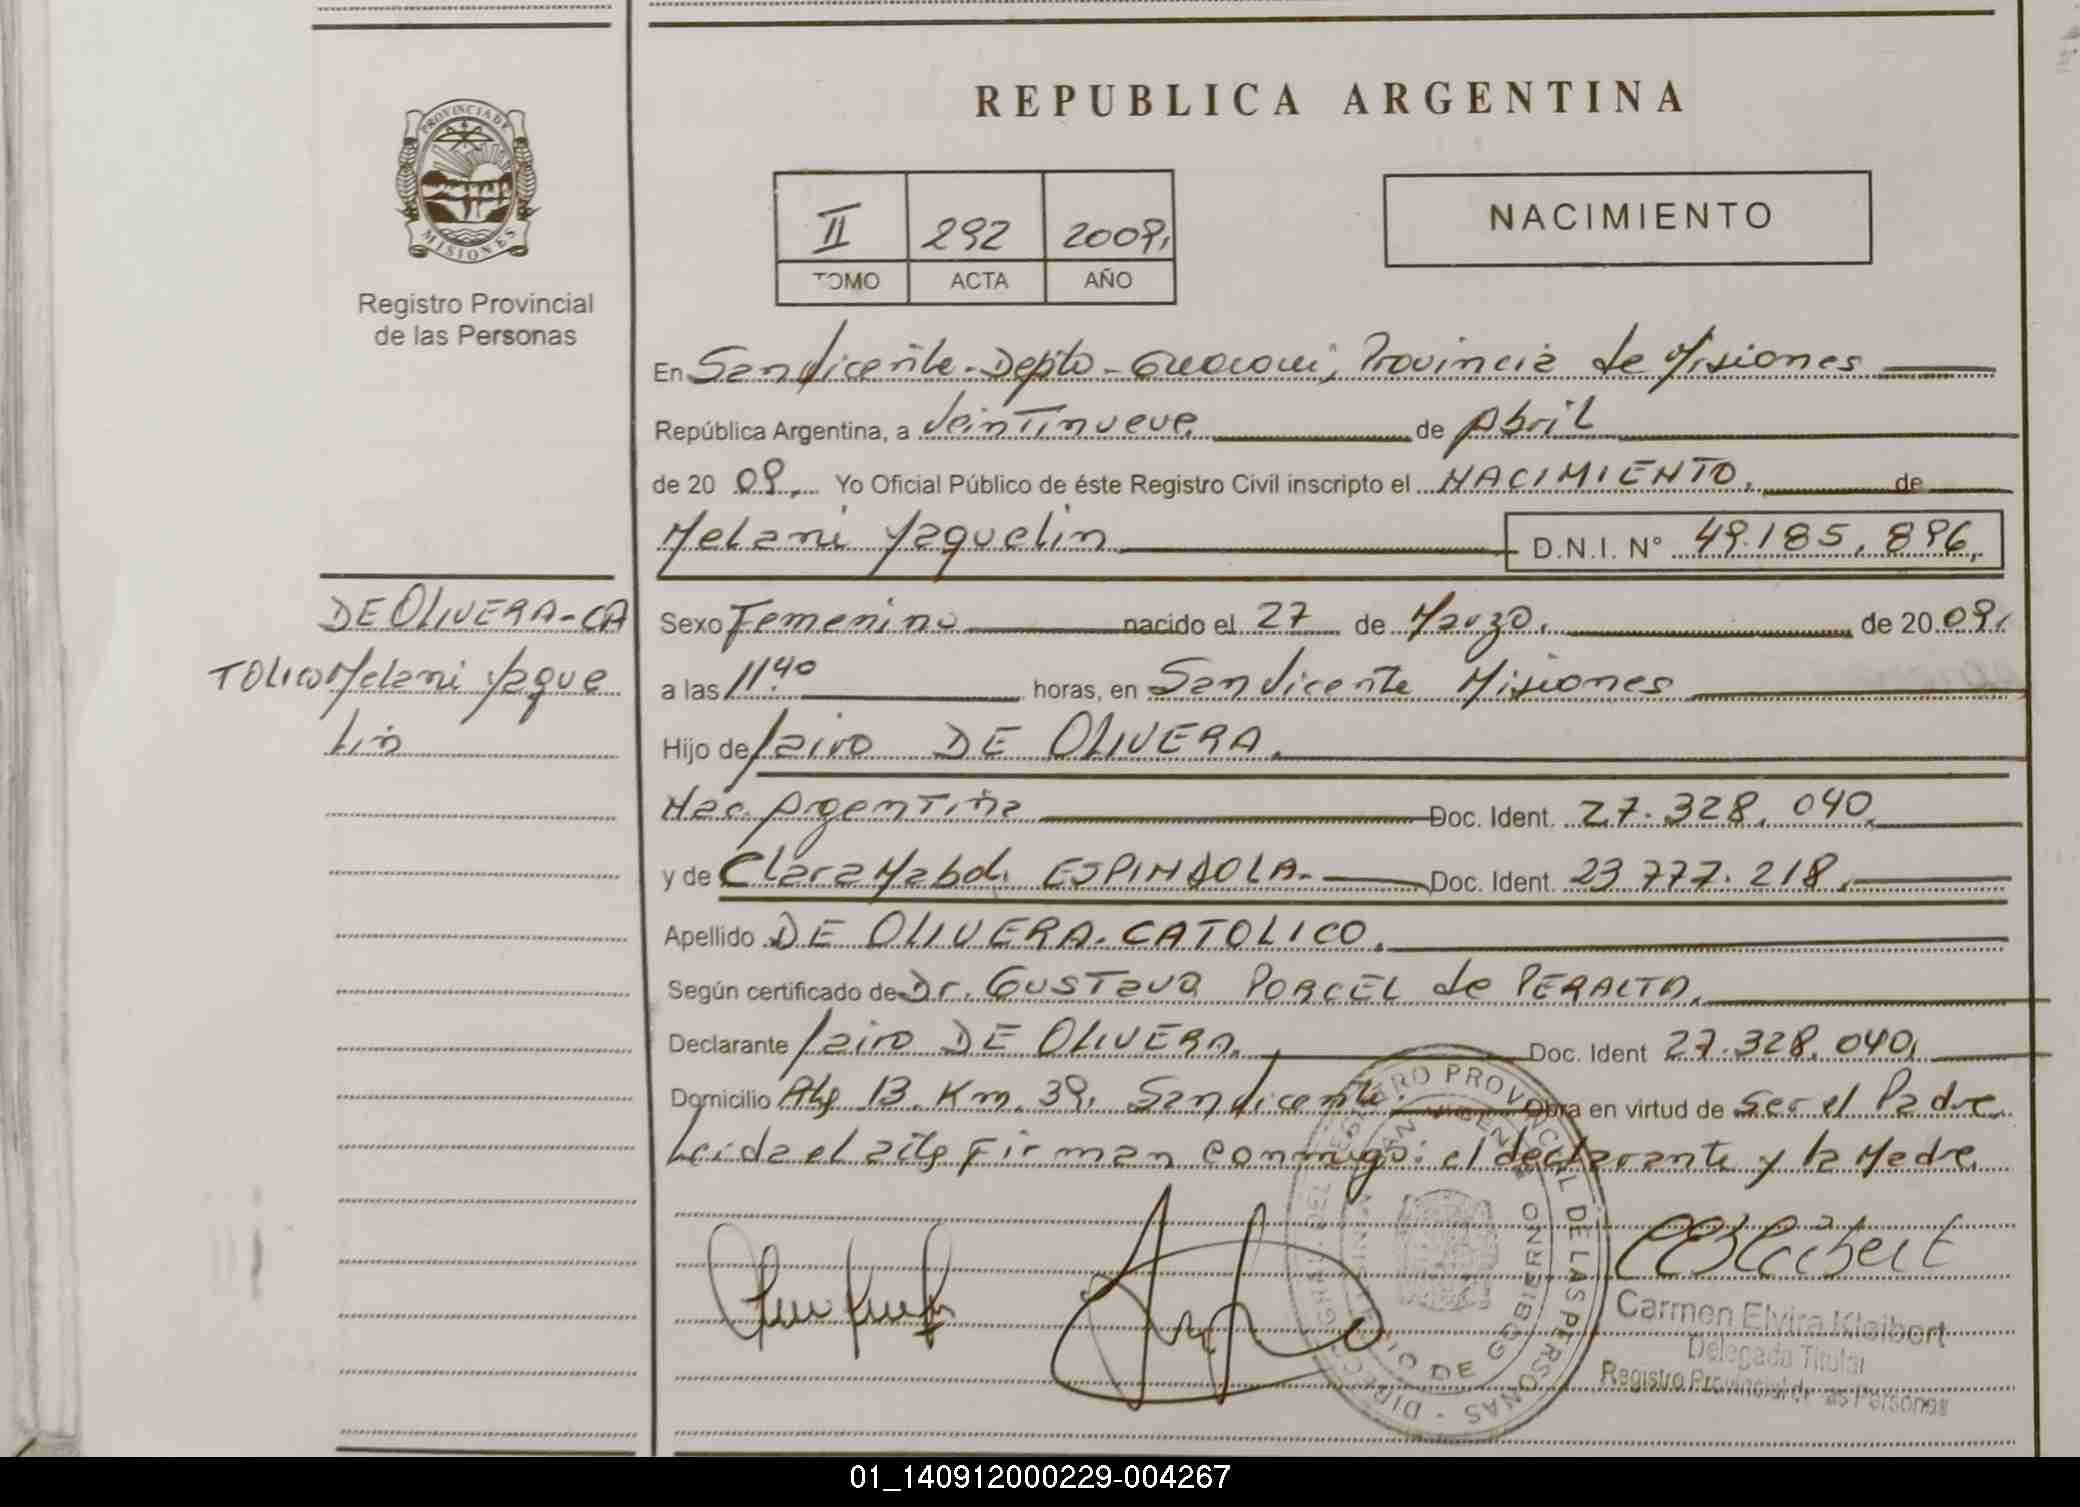 REPUBLICA ARGENTINA
PROVINCIA DE MISIONES
Registro Provincial
de las Personas
II 292 2009,
TOMO ACTA AÑO
NACIMIENTO
En San Vicente - Depto - Guaraní, Provincia de Misiones
República Argentina, a Veintinueve de Abril
de 20 09, Yo Oficial Público de éste Registro Civil inscripto el NACIMIENTO, de
Melani Yaquelin D.N.I. N° 49.185.896,
DE OLIVERA-CA
TOLICO Melani Yaque
Lin
Sexo Femenino nacido el 27 de Marzo, de 20 09,
a las 11,40 horas, en San Vicente Misiones
Hijo de Jairo DE OLIVERA.
Nac. Argentina Doc. Ident. 27.328.040,
y de Clara Mabel. ESPINDOLA- Doc. Ident. 23.777.218,
Apellido DE OLIVERA-CATOLICO.
Según certificado de Dr. GUSTavo PORCEL de PERALTA,
Declarante Jairo DE OLIVERA. Doc. Ident 27.328.040,
Domicilio 13. Km. 39, San Vicente. Obra en virtud de Ser el Padre
Leida el acta Firman conmigo: el declarante y la Madre
REGISTRO PROVINCIAL DE LAS PERSONAS
DE GOBIERNO
Carmen Elvira Kleibert
Delegada Titular
Registro Provincial de las Personas
01_140912000229-004267